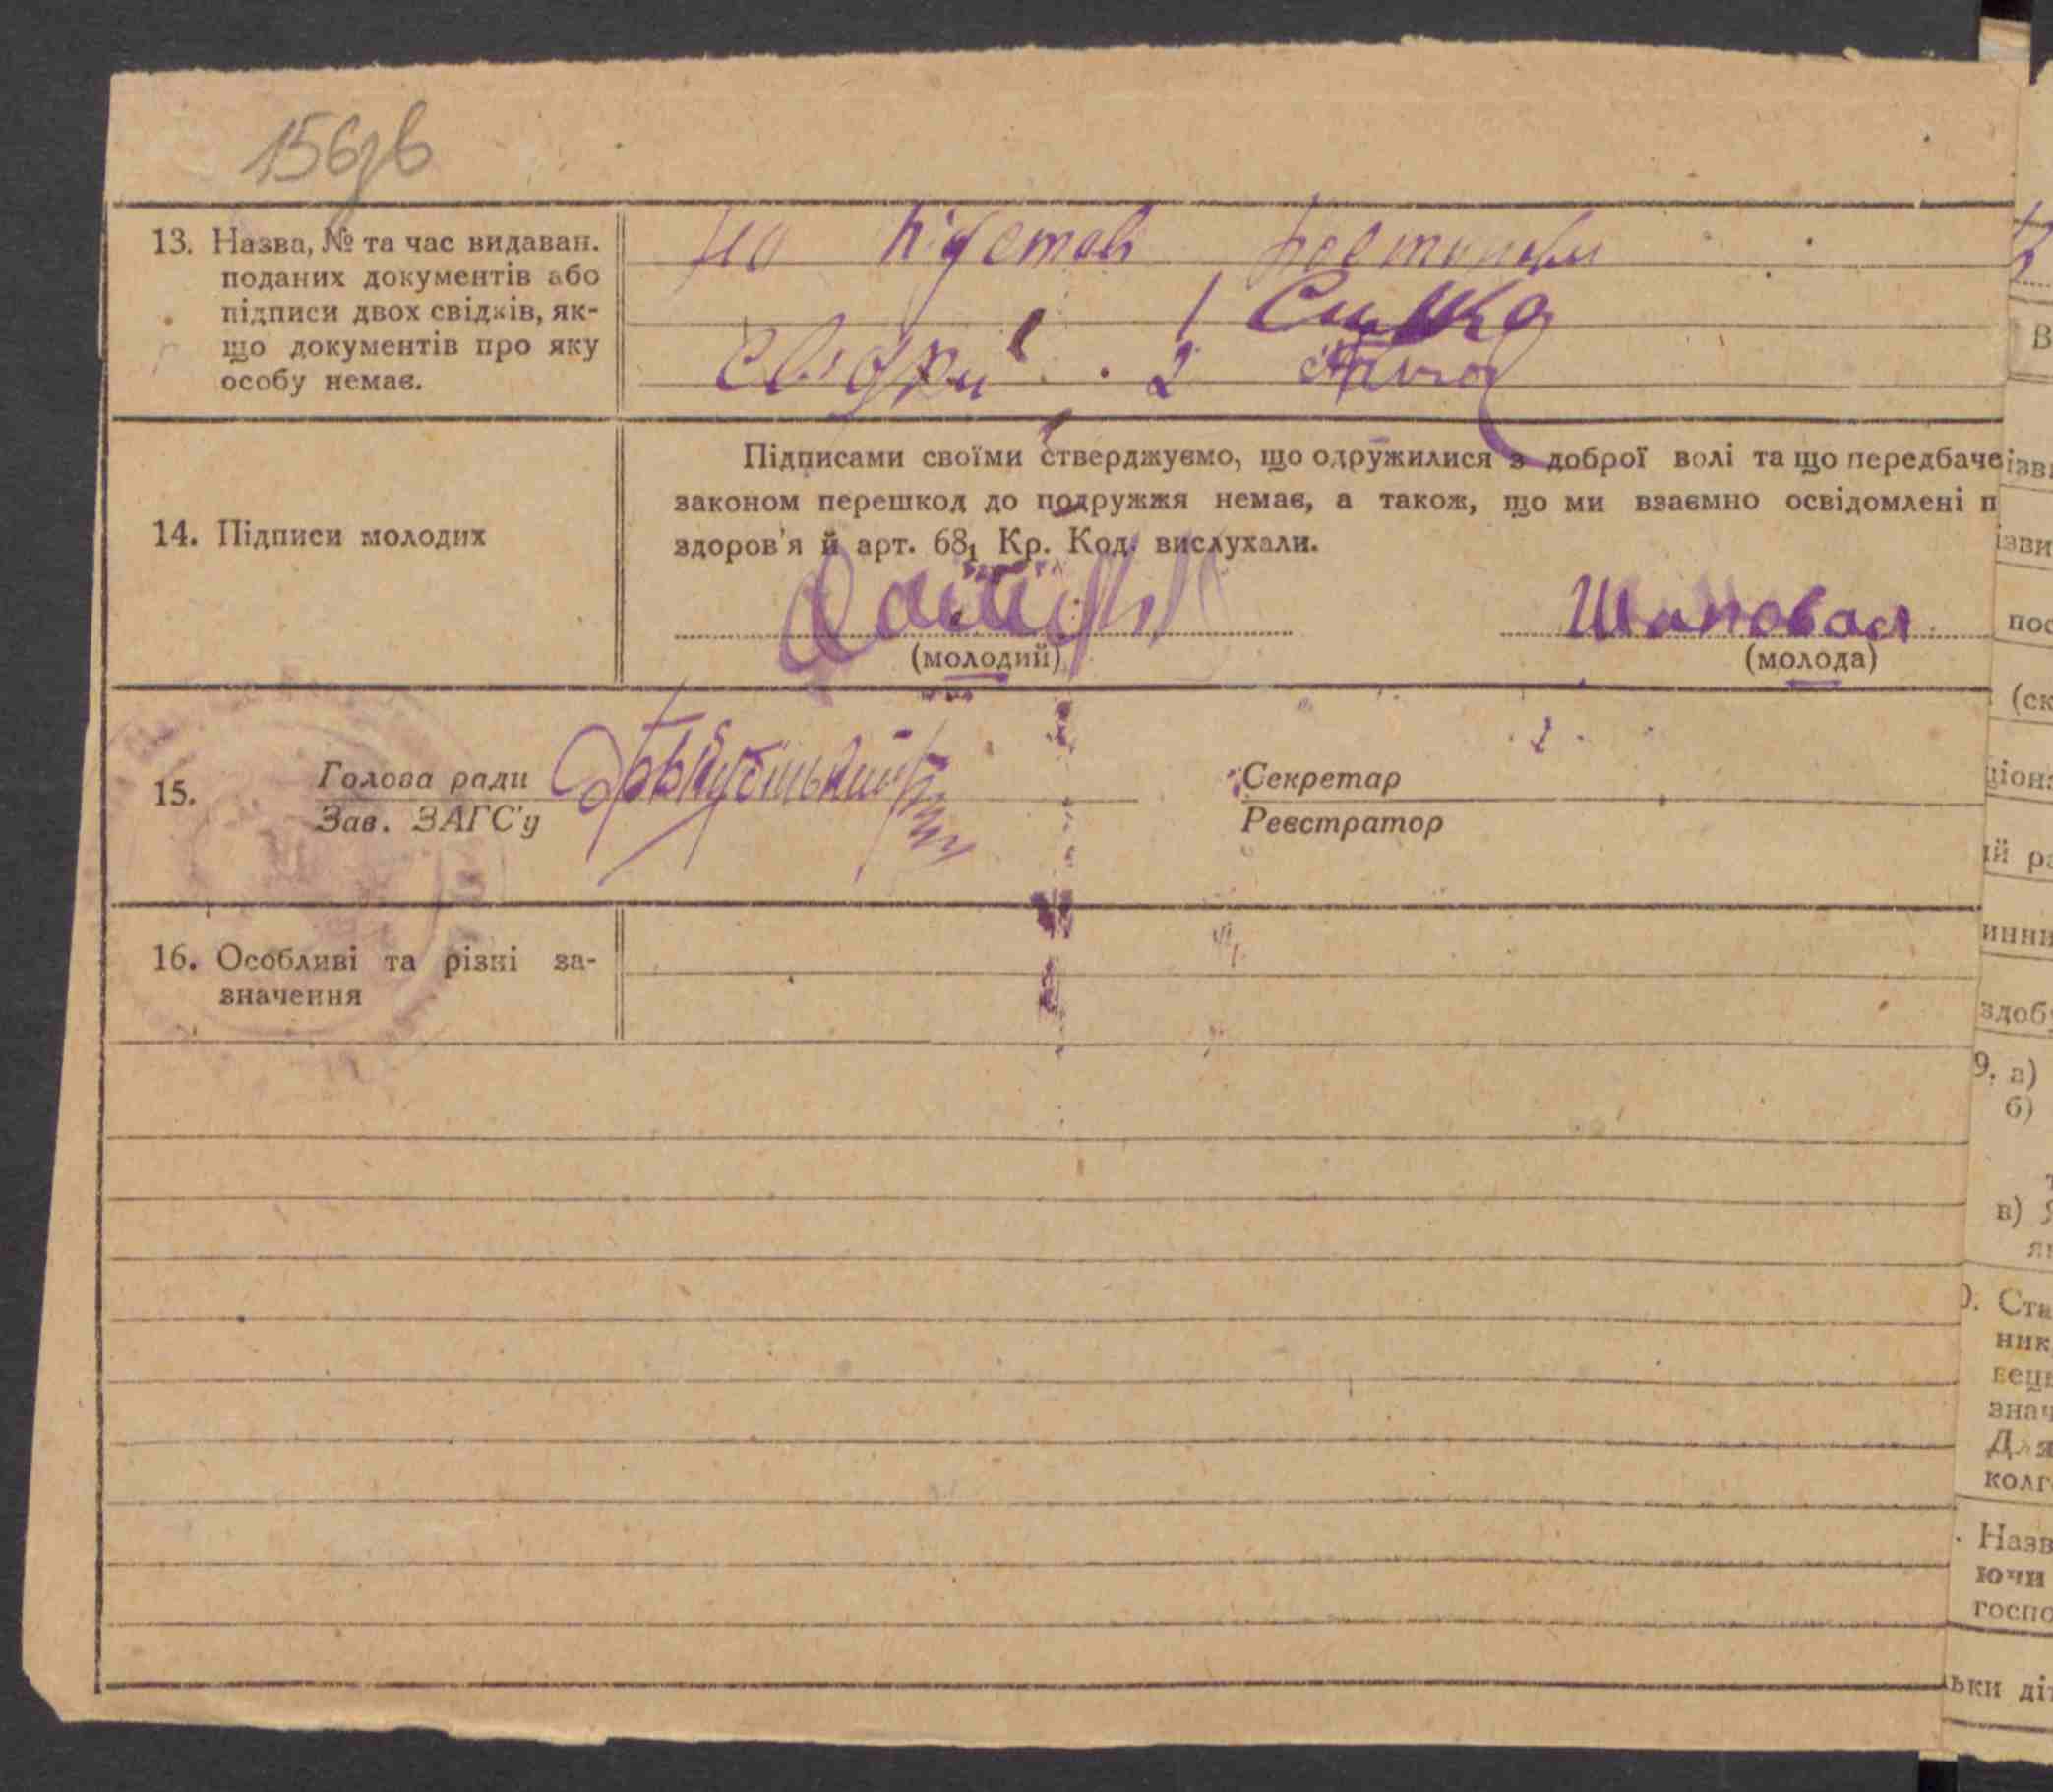 156зв
13. Назва, № та час видаван.
поданих документів або
підписи двох свідків, як-
що документів про яку
особу немає.
На підставі
1 Сишко
Свідки 2
14. Підписи молодих
Підписами своїми стверджуємо, що одружилися з доброї волі та що передбаче
законом перешкод до подружжя немає, а також, що ми взаємно освідомлені п
здоров'я й арт. 68₁ Кр. Код. вислухали.
Шаповал
(молодий) (молода)
15. Голова ради Секретар
Зав. ЗАГС'у Реєстратор
16. Особливі та різні за-
значення
В
ізви
пос
(ск
ціон
ий ра
инни
здоб
9. а)
б)
в)
як
0. Ста
ник
вець
знач
Для
колг
Назв
ючи
госпо
ьки діт